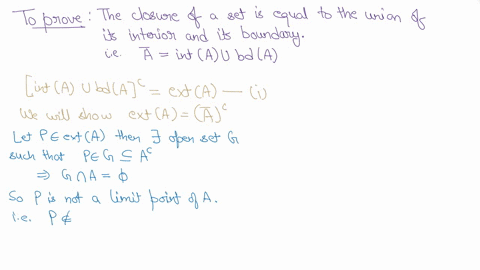 To prove: The closure of a set is equal to the union of
its interior and its boundary.
i.e. A̅ = int(A) ∪ bd(A)
[int(A) ∪ bd(A)]ᶜ = ext(A) — (i)
We will show ext(A) = (A̅)ᶜ
Let P ∈ ext(A) then ∃ open set G
such that P ∈ G ⊆ Aᶜ
⇒ G ∩ A = ϕ
So P is not a limit point of A.
i.e. P ∉